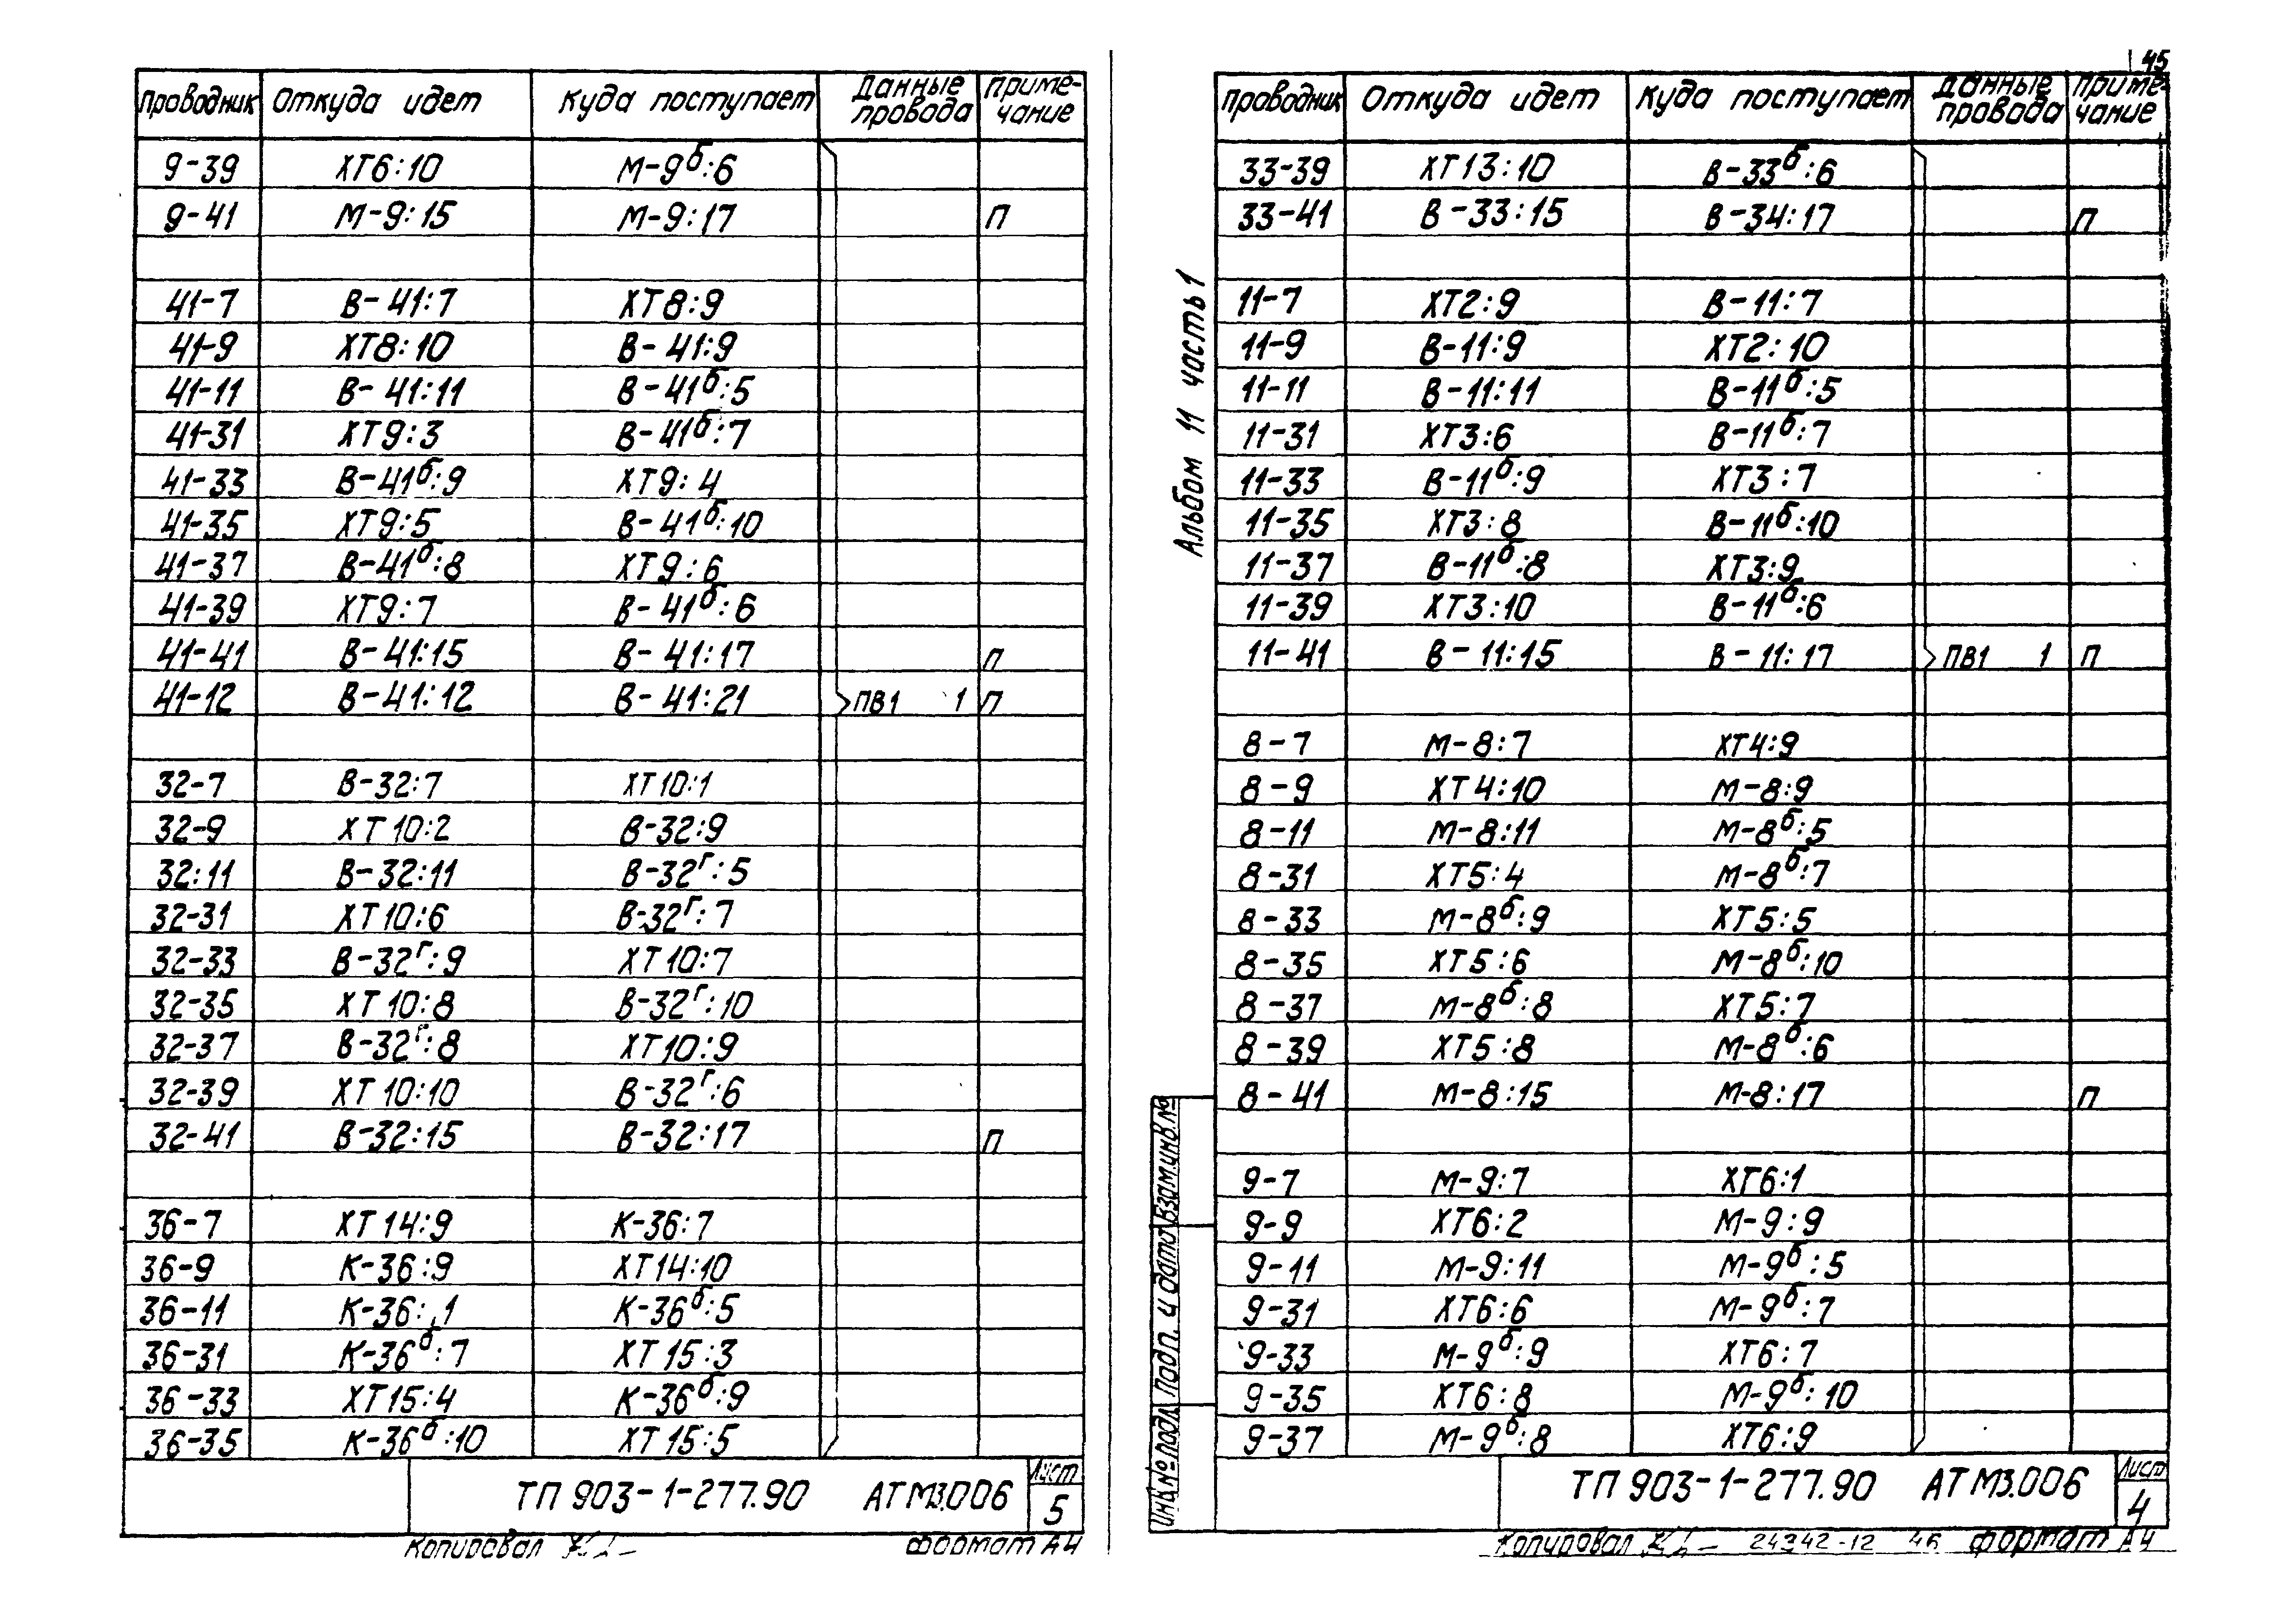 Проводник Откуда идет Куда поступает Данные провода Примечание
9-39 XT6:10 М-9б:6
9-41 М-9:15 М-9:17 П
41-7 В-41:7 XT8:9
41-9 XT8:10 В-41:9
41-11 В-41:11 В-41б:5
41-31 XT9:3 В-41б:7
41-33 В-41б:9 XT9:4
41-35 XT9:5 В-41б:10
41-37 В-41б:8 XT9:6
41-39 XT9:7 В-41б:6
41-41 В-41:15 В-41:17 П
41-12 В-41:12 В-41:21 ПВ1 1 П
32-7 В-32:7 XT10:1
32-9 XT10:2 В-32:9
32:11 В-32:11 В-32г:5
32-31 XT10:6 В-32г:7
32-33 В-32г:9 XT10:7
32-35 XT10:8 В-32г:10
32-37 В-32г:8 XT10:9
32-39 XT10:10 В-32г:6
32-41 В-32:15 В-32:17 П
36-7 XT14:9 К-36:7
36-9 К-36:9 XT14:10
36-11 К-36:,1 К-36б:5
36-31 К-36б:7 XT15:3
36-33 XT15:4 К-36б:9
36-35 К-36б:10 XT15:5
ТП 903-1-277.90 АТМ3.006 Лист 5
Копировал Формат А4
45
Проводник Откуда идет Куда поступает Данные провода Примечание
33-39 XT13:10 В-33б:6
33-41 В-33:15 В-34:17 П
11-7 XT2:9 В-11:7
11-9 В-11:9 XT2:10
11-11 В-11:11 В-11б:5
11-31 XT3:6 В-11б:7
11-33 В-11б:9 XT3:7
11-35 XT3:8 В-11б:10
11-37 В-11б:8 XT3:9
11-39 XT3:10 В-11б:6
11-41 В-11:15 В-11:17 ПВ1 1 П
8-7 М-8:7 XT4:9
8-9 XT4:10 М-8:9
8-11 М-8:11 М-8б:5
8-31 XT5:4 М-8б:7
8-33 М-8б:9 XT5:5
8-35 XT5:6 М-8б:10
8-37 М-8б:8 XT5:7
8-39 XT5:8 М-8б:6
8-41 М-8:15 М-8:17 П
9-7 М-9:7 XT6:1
9-9 XT6:2 М-9:9
9-11 М-9:11 М-9б:5
9-31 XT6:6 М-9б:7
9-33 М-9б:9 XT6:7
9-35 XT6:8 М-9б:10
9-37 М-9б:8 XT6:9
ТП 903-1-277.90 АТМ3.006 Лист 4
Копировал 24342-12 46 Формат А4
Альбом 11 часть 1
Инв.№ подл. Подп. и дата Взам.инв.№